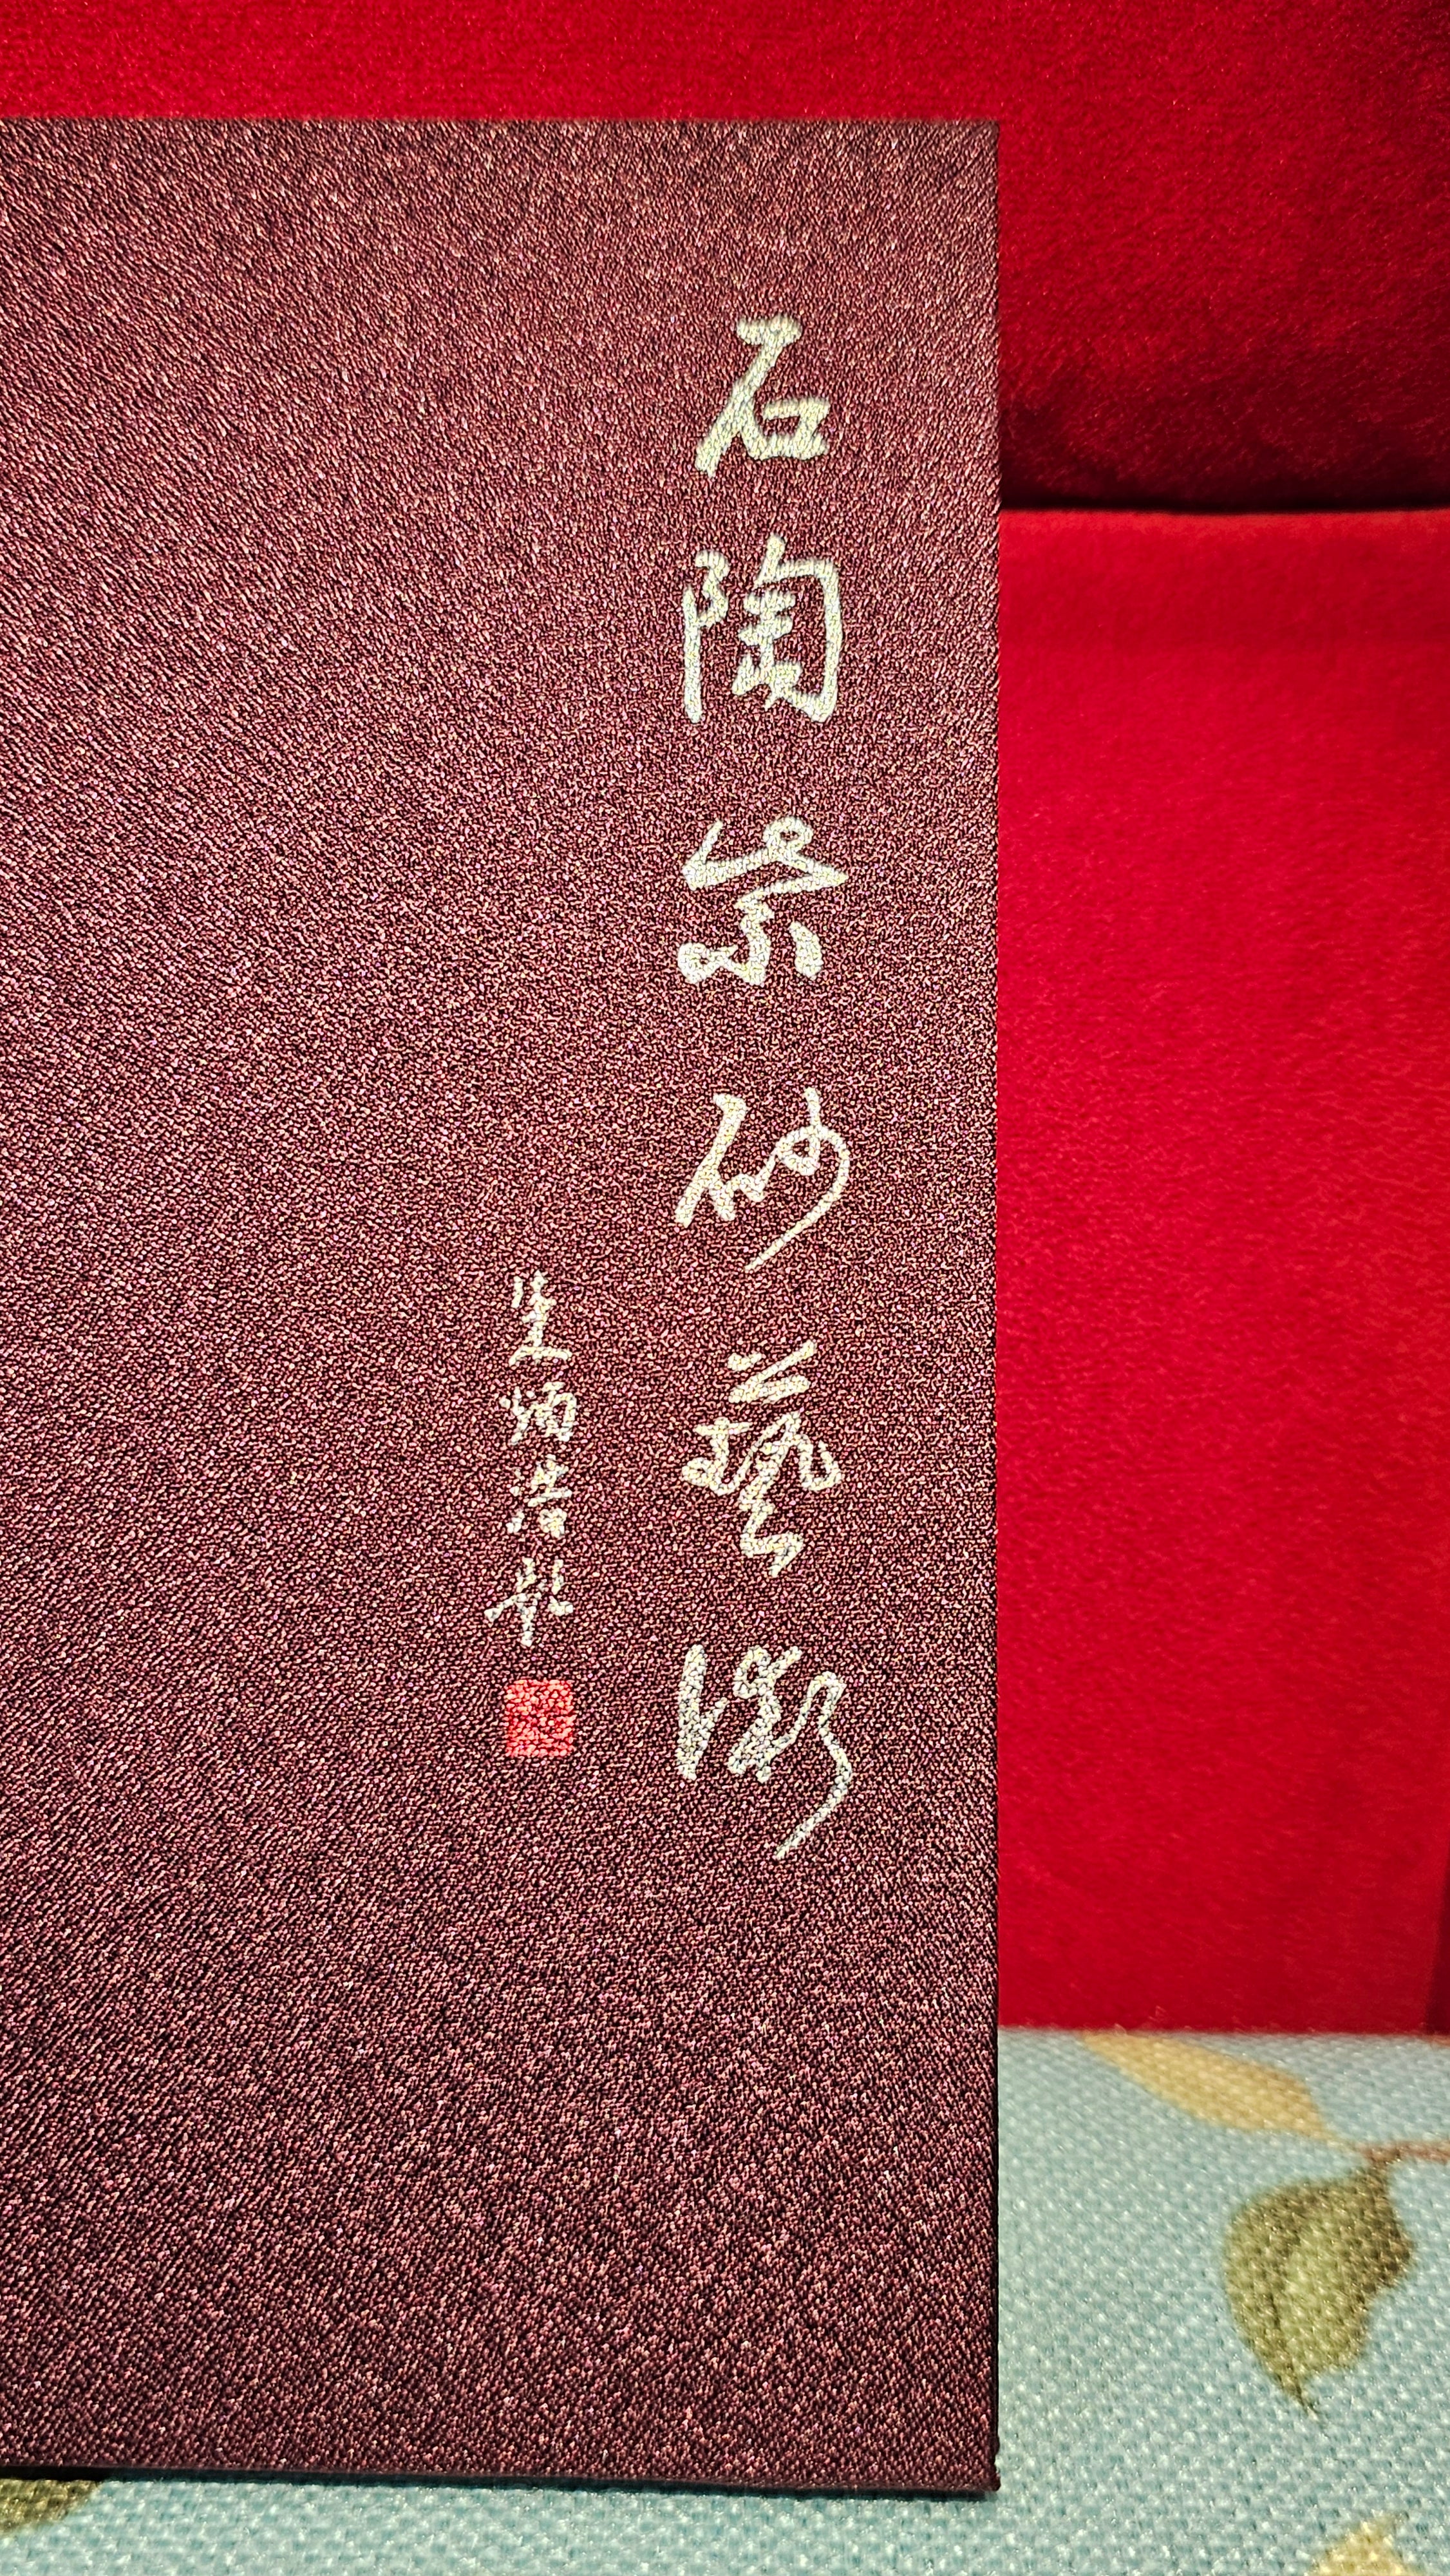 石陶紫砂藝術
朱炳浩題